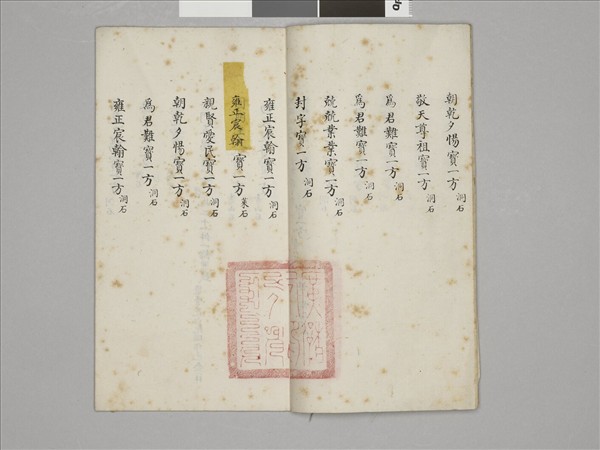 朝乾夕惕寶一方 洞石
敬天尊祖寶一方 洞石
為君難寶一方 洞石
為君難寶一方 洞石
兢兢業業寶一方 洞石
封字寶一方 洞石
雍正宸翰寶一方 洞石
雍正宸翰寶一方 萊石
親賢愛民寶一方 洞石
朝乾夕惕寶一方 洞石
為君難寶一方 洞石
雍正宸翰寶一方 洞石